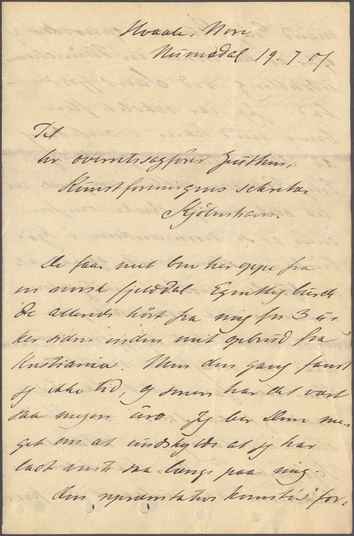 Hvaale, Nore
Numedal 19.7.07.
Til
hr overretssagfører
Kunstforeningens sekretær
Kjöbenhavn.
De faar mit brev her oppe fra
en norsk fjelddal. Egentlig burde
De allerede hört fra mig for 3 à
ker siden inden mit opbrud fra
Kristiania. Men den gang fandt
jeg ikke tid, og senere har det vært
saa megen uro. Jeg ber Dem me-
get om at undskylde at jeg har
ladt vente saa længe paa mig.
Den, repræsentative kunst for,